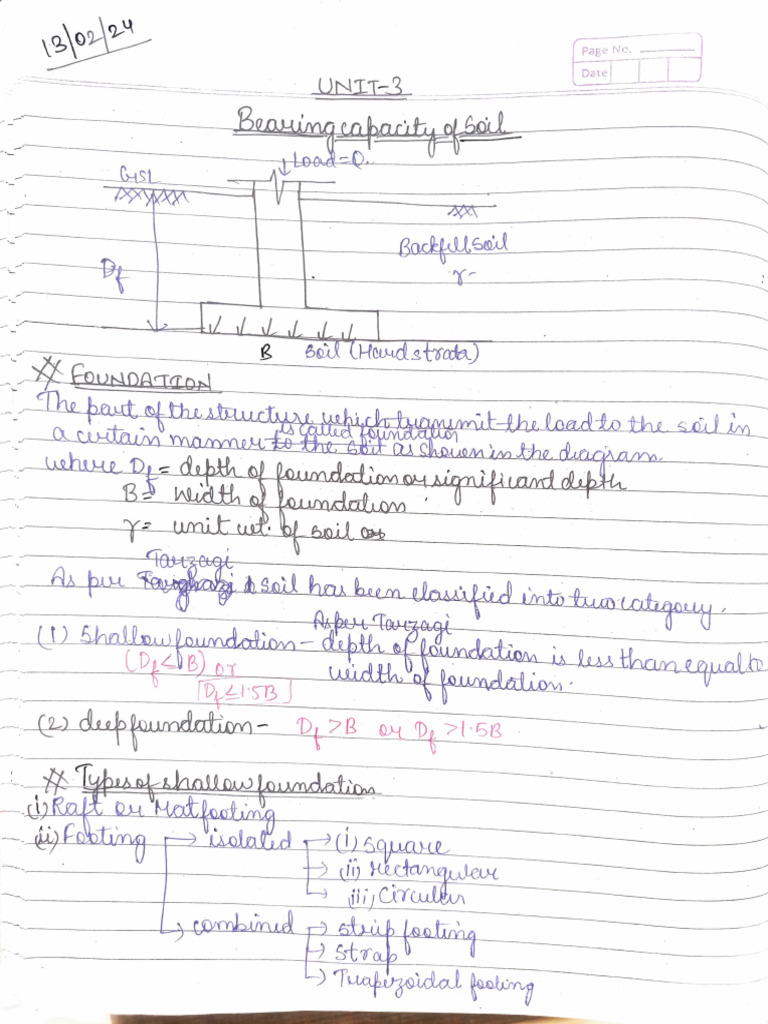 13/02/24
Page No.
Date
UNIT-3
Bearing capacity of Soil
Load = Q.
GSL
Backfill Soil
Df
γ-
B Soil (Hard strata)
# FOUNDATION
The part of the structure which transmit the load to the soil in
is called foundation
a certain manner to the soil as shown in the diagram.
where Df = depth of foundation or significant depth
B = width of foundation
γ = unit wt. of soil
Tarzagi
As per soil has been classified into two category.
As per Tarzagi
(1) Shallow foundation - depth of foundation is less than equal to
(Df ≤ B) or width of foundation.
Df ≤ 1.5B
(2) deep foundation - Df > B or Df > 1.5B
# Types of shallow foundation
(i) Raft or Mat footing
(ii) Footing → isolated → (i) square
→ (ii) Rectangular
→ (iii) Circular
→ combined → strip footing
→ Strap
→ Trapizoidal footing